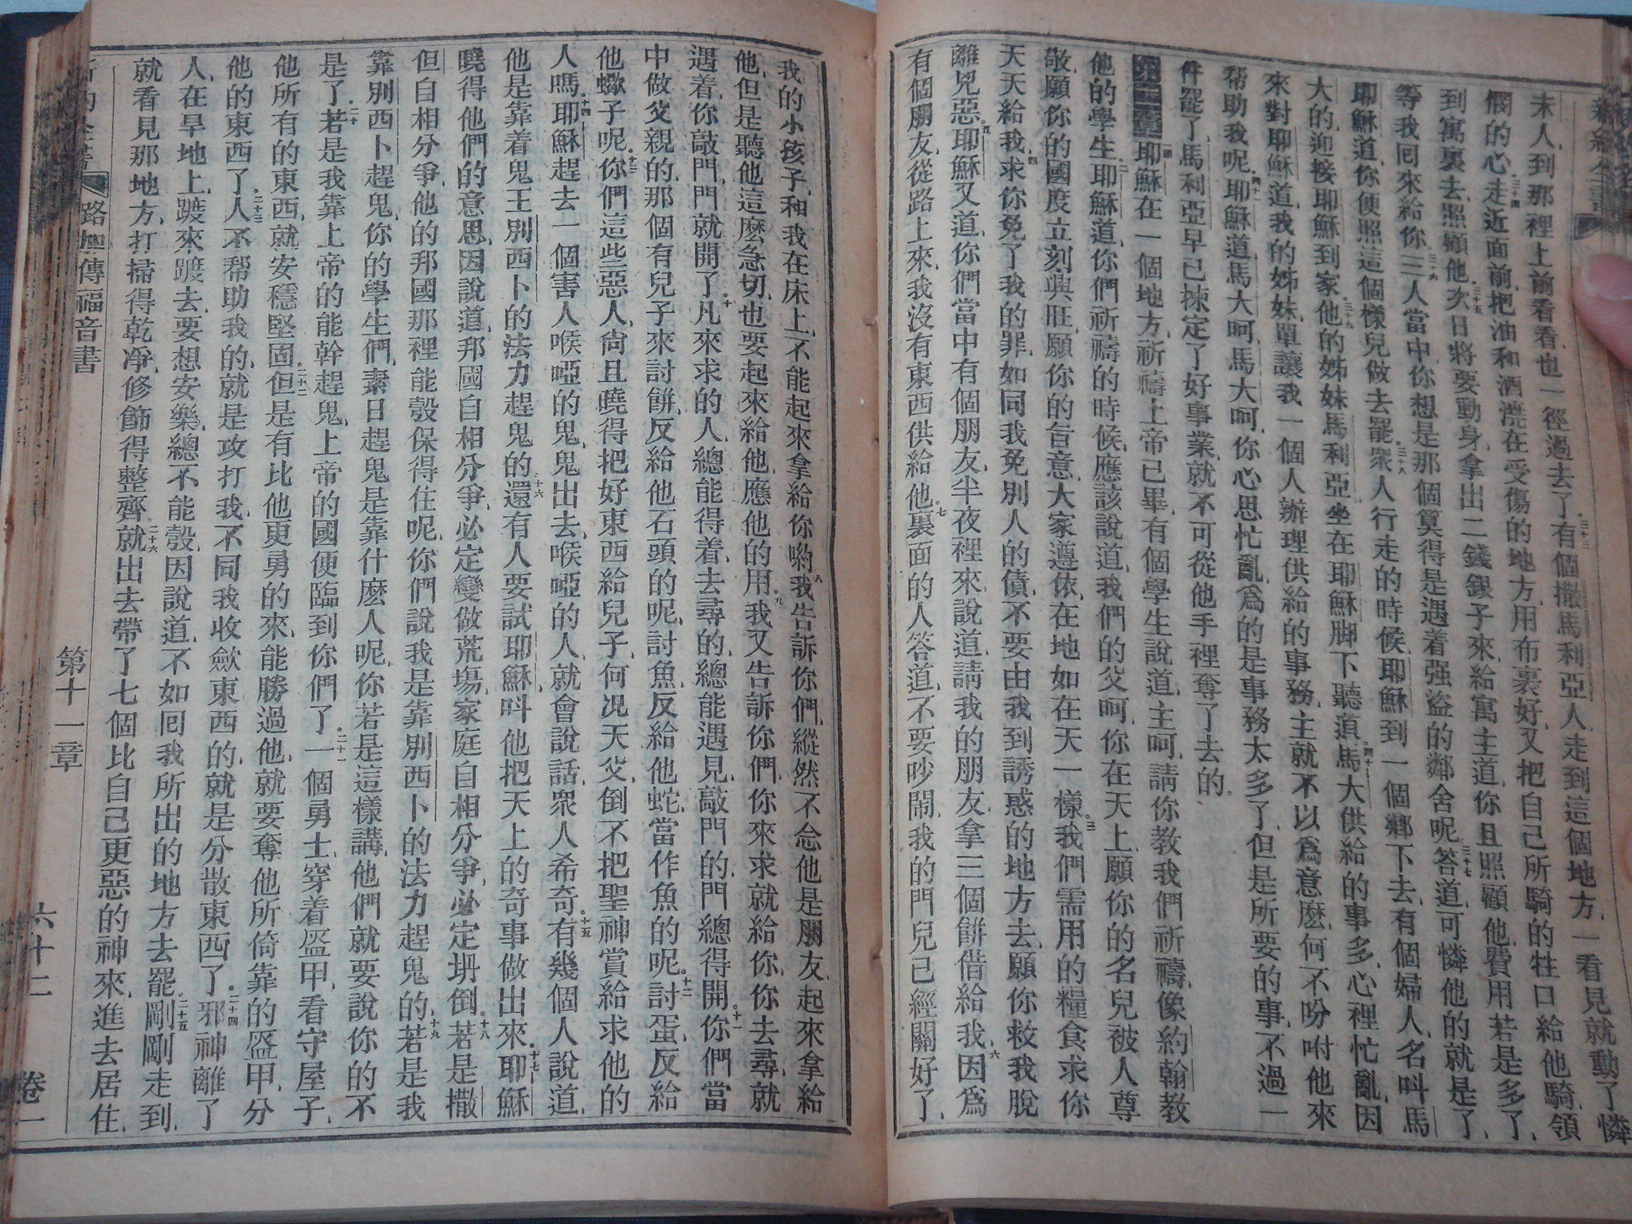 未人到那裡上前看看也一徑過去了有個撒馬利亞人走到這個地方一看見就動了憐
憫的心走近面前把油和酒澆在受傷的地方用布裹好又把自己所騎的牲口給他騎領
到寓裏去照顧他次日將要動身拿出二錢銀子來給寓主道你且照顧他費用若是多了
等我囘來給你三人當中你想是那個算得是遇着强盜的鄰舍呢答道可憐他的就是了
耶穌道你便照這個樣兒做去罷衆人行走的時候耶穌到一個鄕下去有個婦人名呌馬
大的迎接耶穌到家他的姊妹馬利亞坐在耶穌脚下聽道馬大供給的事多心裡忙亂因
來對耶穌道我的姊妹單讓我一個人辦理供給的事務主就不以爲意麽何不吩咐他來
帮助我呢耶穌道馬大呵馬大呵你心思忙亂爲的是事務太多了但是所要的事不過一
件罷了馬利亞早已揀定了好事業就不可從他手裡奪了去的
耶穌在一個地方祈禱上帝已畢有個學生說道主呵請你教我們祈禱像約翰教
他的學生耶穌道你們祈禱的時候應該說道我們的父呵你在天上願你的名兒被人尊
敬願你的國度立刻興旺願你的旨意大家遵依在地如在天一樣我們需用的糧食求你
天天給我求你免了我的罪如同我免別人的債不要由我到誘惑的地方去願你救我脫
離兇惡耶穌又道你們當中有個朋友半夜裡來說道請我的朋友拿三個餅借給我因爲
有個朋友從路上來我沒有東西供給他裏面的人答道不要吵鬧我的門兒已經關好了
我的小孩子和我在床上不能起來拿給你喲我告訴你們縱然不念他是朋友起來拿給
他但是聽他這麽急切也要起來給他應他的用我又告訴你們你來求就給你你去尋就
遇着你敲門門就開了凡來求的人總能得着去尋的總能遇見敲門的門總得開你們當
中做父親的那個有兒子來討餅反給他石頭的呢討魚反給他蛇當作魚的呢討蛋反給
他蠍子呢你們這些惡人尙且曉得把好東西給兒子何况天父倒不把聖神賞給求他的
人嗎耶穌趕去一個害人喉啞的鬼鬼出去喉啞的人就會說話衆人希奇有幾個人說道
他是靠着鬼王別西卜的法力趕鬼的還有人要試耶穌呌他把天上的奇事做出來耶穌
曉得他們的意思因說道邦國自相分爭必定變做荒塲家庭自相分爭必定坍倒若是撒
但自相分爭他的邦國那裡能彀保得住呢你們說我是靠別西卜的法力趕鬼的若是我
靠別西卜趕鬼你的學生們素日趕鬼是靠什麽人呢你若是這樣講他們就要說你的不
是了若是我靠上帝的能幹趕鬼上帝的國便臨到你們了一個勇士穿着盔甲看守屋子
他所有的東西就安穩堅固但是有比他更勇的來能勝過他就要奪他所倚靠的盔甲分
他的東西了人不帮助我的就是攻打我不同我收歛東西的就是分散東西了邪神離了
人在旱地上踱來踱去要想安樂總不能彀因說道不如囘我所出的地方去罷剛剛走到
就看見那地方打掃得乾凈修節得整齊就出去帶了七個比自己更惡的神來進去居住
路加傳福音書 第十一章 六十二 卷一